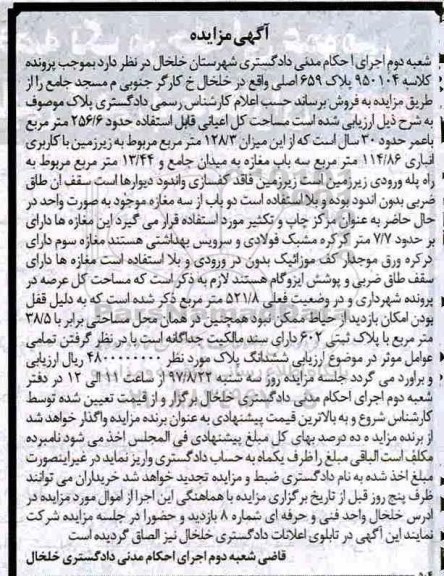 آگهی مزایده
شعبه دوم اجرای احکام مدنی دادگستری شهرستان خلخال در نظر دارد بموجب پرونده
کلاسه ۹۵۰۱۰۴ پلاک ۶۵۹ اصلی واقع در خلخال خ کارگر جنوبی م مسجد جامع را از
طریق مزایده به فروش برساند حسب اعلام کارشناس رسمی دادگستری پلاک موصوف
به شرح ذیل ارزیابی شده است مساحت کل اعیانی قابل استفاده حدود ۲۵۶/۶ متر مربع
باعمر حدود ۳۰ سال است که از این میزان ۱۲۸/۳ متر مربع مربوط به زیرزمین با کاربری
انباری ۱۱۴/۸۶ متر مربع سه باب مغازه به میدان جامع و ۱۳/۴۴ متر مربع مربوط به
راه پله ورودی زیرزمین است زیرزمین فاقد کفسازی واندود دیوارها است سقف ان طاق
ضربی بدون اندود بوده و بلا استفاده است دو باب از سه مغازه موجود به صورت واحد در
حال حاضر به عنوان مرکز چاپ و تکثیر مورد استفاده قرار می گیرد این مغازه ها دارای
بر حدود ۷/۷ متر کرکره مشبک فولادی و سرویس بهداشتی هستند مغازه سوم دارای
درکره ورق موجدار کف موزائیک بدون در ورودی و بلا استفاده است مغازه ها دارای
سقف طاق ضربی و پوشش ایزوگام هستند لازم به ذکر است که مساحت کل عرصه در
پرونده شهرداری و در وضعیت فعلی ۵۲۱/۸ متر مربع ذکر شده است که به دلیل قفل
بودن امکان بازدید از حیاط ممکن نبود همچنین در همان محل مساحتی برابر با ۳۸/۵
متر مربع با پلاک ثبتی ۶۰۲ دارای سند مالکیت جداگانه است با در نظر گرفتن تمامی
عوامل موثر در موضوع ارزیابی ششدانگ پلاک مورد نظر ۴۸۰۰۰۰۰۰۰۰ ریال ارزیابی
و براورد می گردد جلسه مزایده روز سه شنبه ۹۷/۸/۲۲ از ساعت ۱۱ الی ۱۲ در دفتر
شعبه دوم اجرای احکام مدنی دادگستری خلخال برگزار و از قیمت تعیین شده توسط
کارشناس شروع و به بالاترین قیمت پیشنهادی به عنوان برنده مزایده واگذار خواهد شد
از برنده مزایده ده درصد بهای کل مبلغ پیشنهادی فی المجلس اخذ می شود نامبرده
مکلف است الباقی مبلغ را ظرف یکماه به حساب دادگستری واریز نماید در غیراینصورت
مبلغ اخذ شده به نام دادگستری ضبط و مزایده تجدید خواهد شد خریداران می توانند
ظرف پنج روز قبل از تاریخ برگزاری مزایده با هماهنگی این اجرا از اموال مورد مزایده در
ادرس خلخال واحد فنی و حرفه ای شماره ۸ بازدید و حضورا در جلسه مزایده شرکت
نمایند این آگهی در تابلوی اعلانات دادگستری خلخال نیز الصاق گردیده است
قاضی شعبه دوم اجرای احکام مدنی دادگستری خلخال